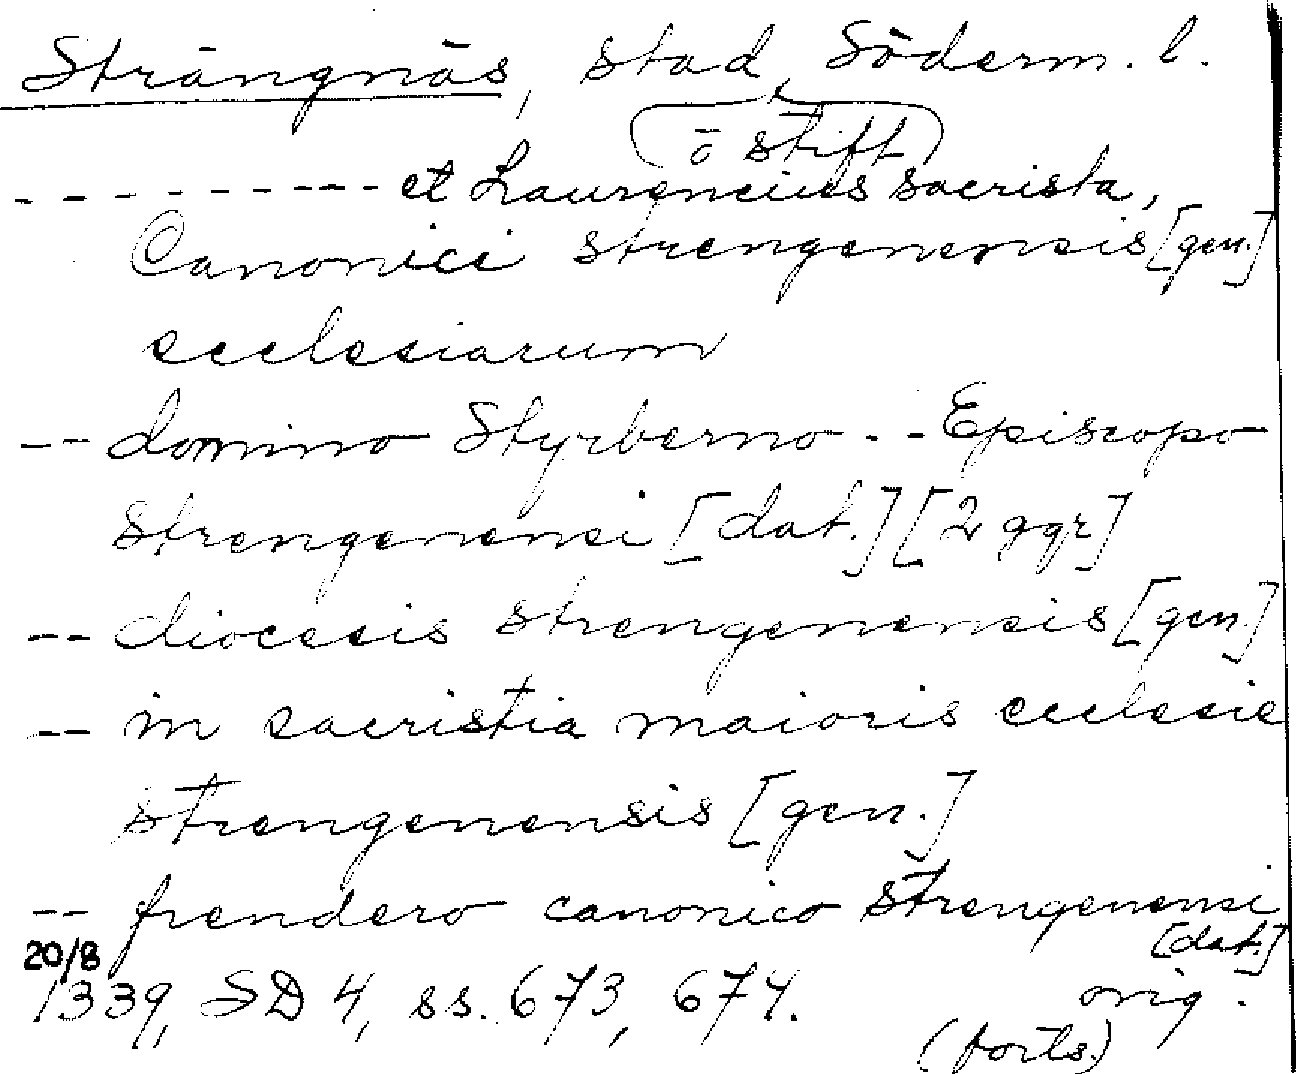 Strängnäs, stad, Söderm. l.
ō stift
- - - - - - - - - - et Laurencius sacrista,
Canonici strengenensis [gen.]
ecclesiarum
-- domino Styrberno - - Episcopo
strengenensi [dat.] [2 ggr]
-- diocesis strengenensis [gen.]
-- in sacristia maioris ecclesie
strengenensis [gen.]
-- frendero canonico Strengenensi
[dat.]
20/8
1339, SD 4, ss. 673, 674. orig.
(forts.)